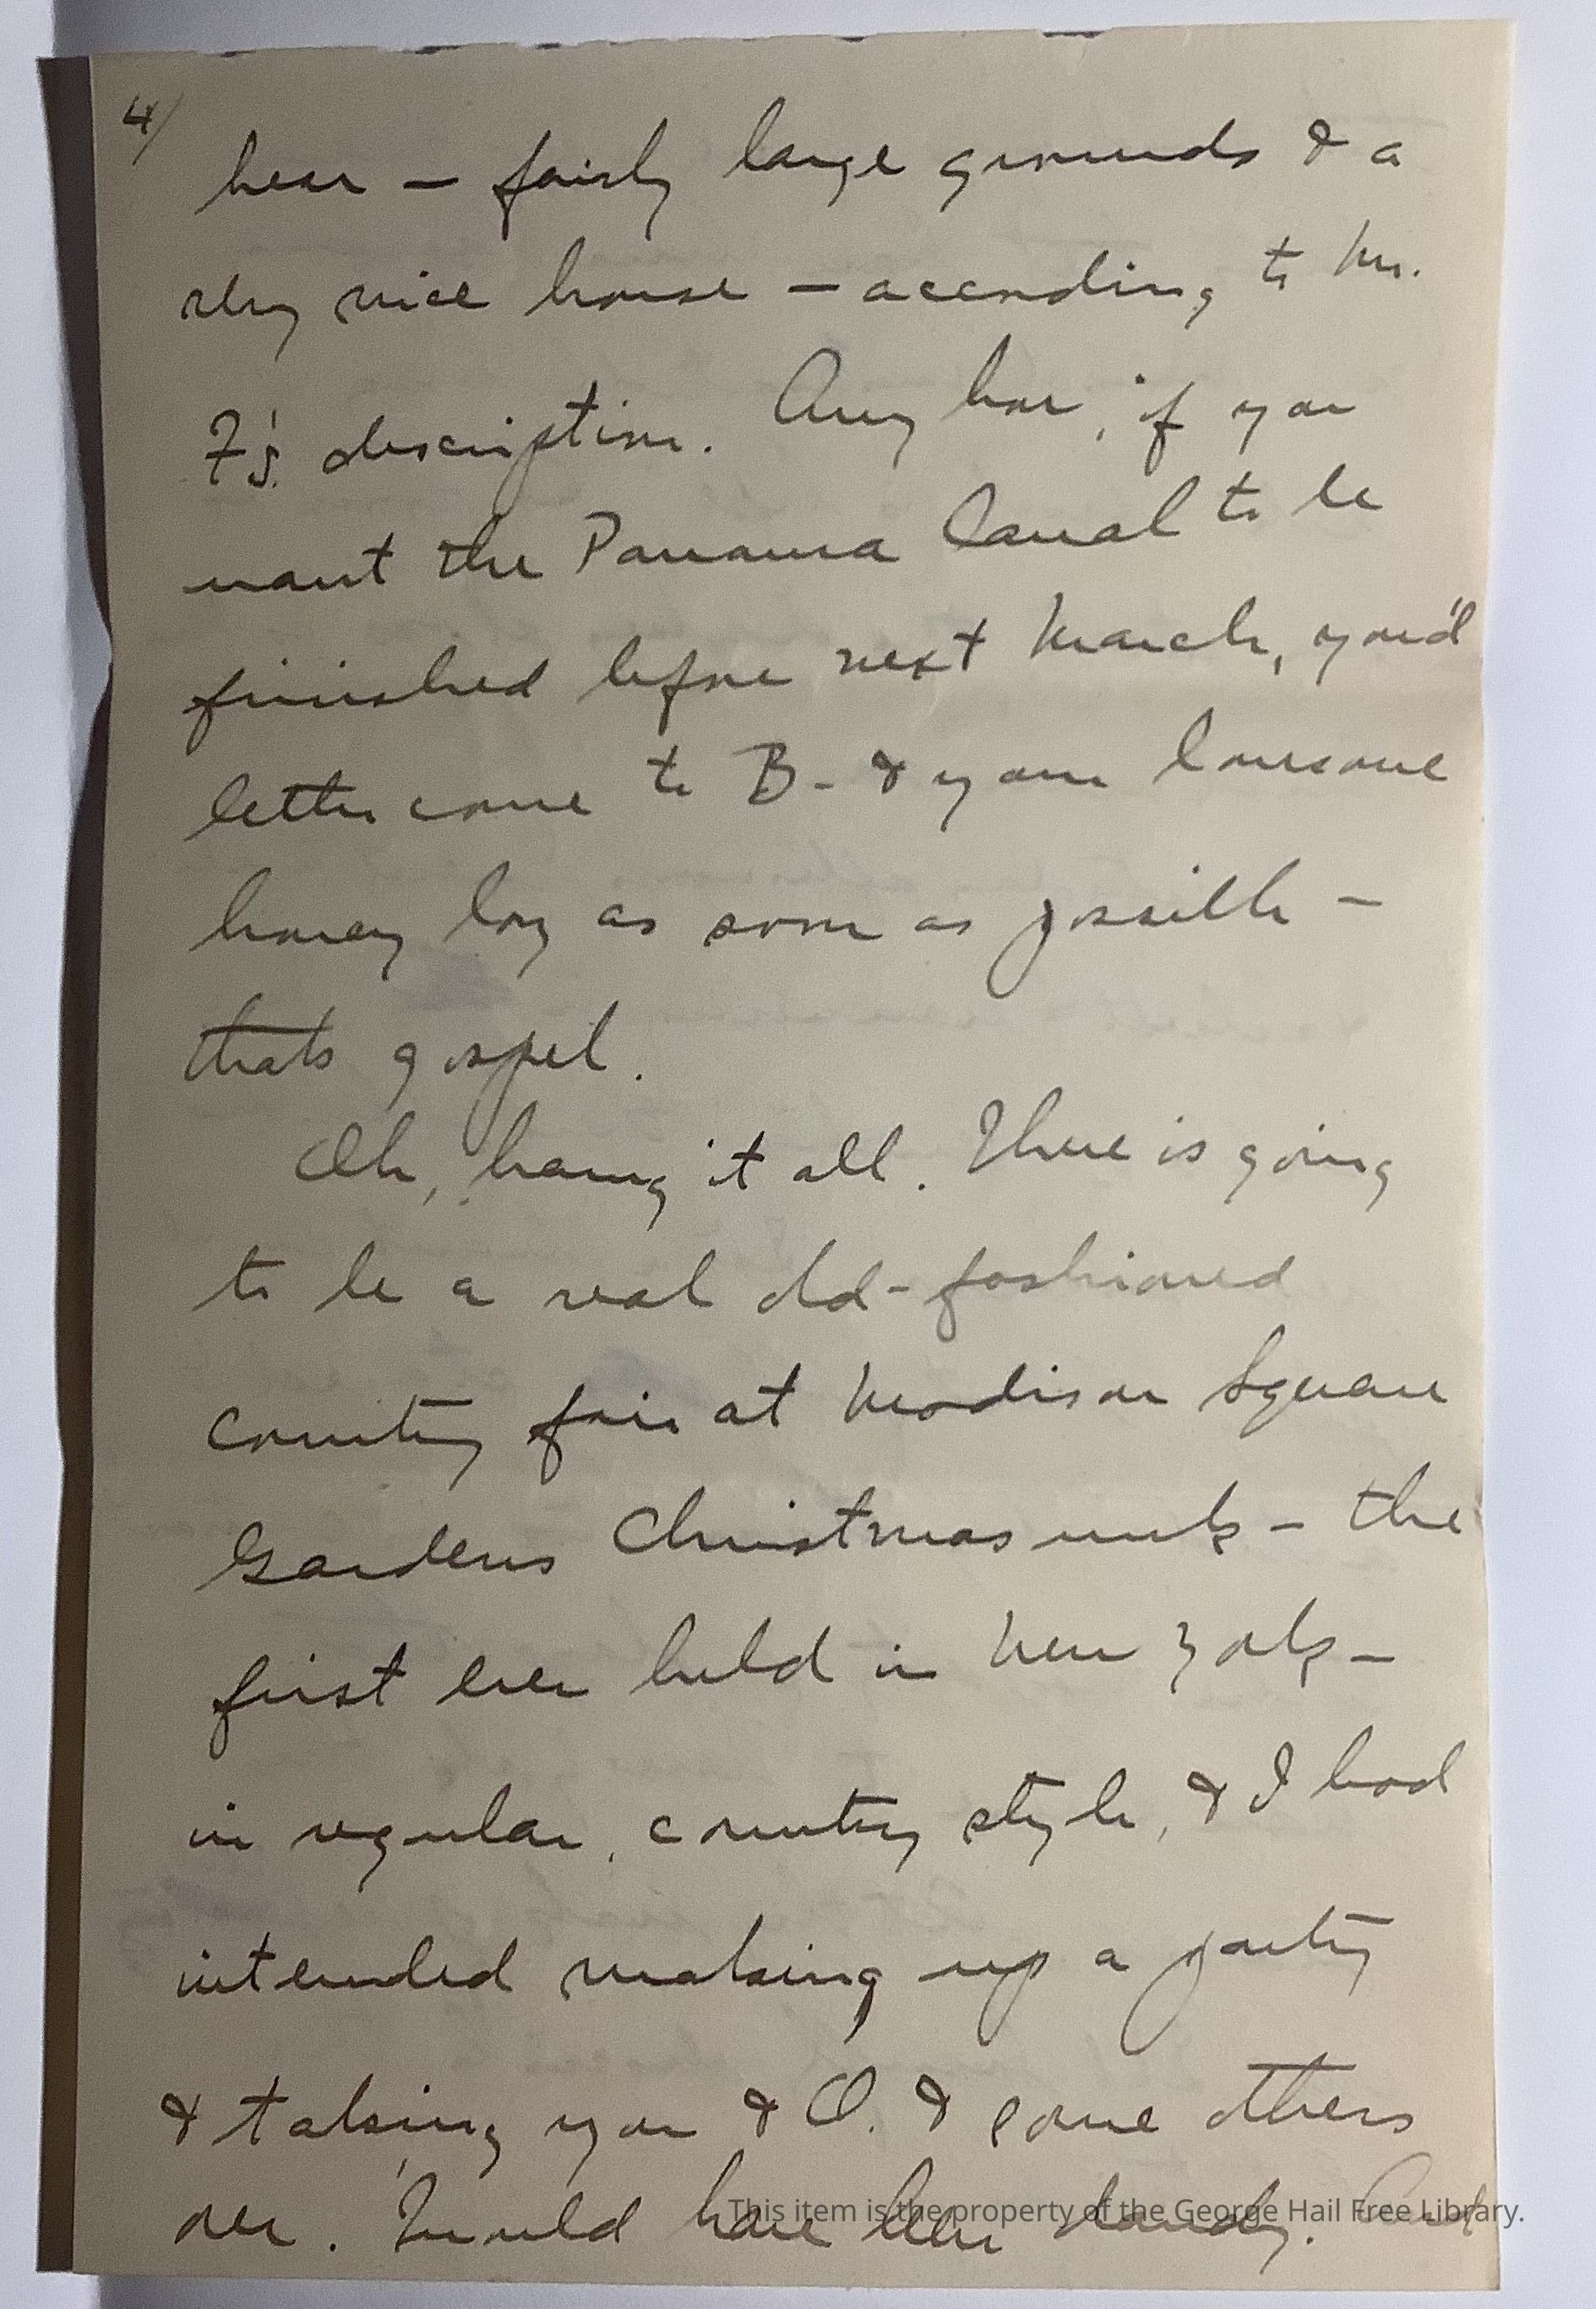 4/
hear — fairly large grounds & a
very nice house — according to Mr.
F's. description. Any how, if you
want the Panama Canal to be
finished before next March, you'd
better come to B. & your lonesome
honey boy as soon as possible —
thats gospel.
Oh, hang it all. There is going
to be a real old-fashioned
country fair at Madison Square
Gardens Christmas week — the
first ever held in New York —
in regular, country style, & I had
intended making up a party
& taking you & O. & some others
over. Would have been dandy. And
This item is the property of the George Hail Free Library.